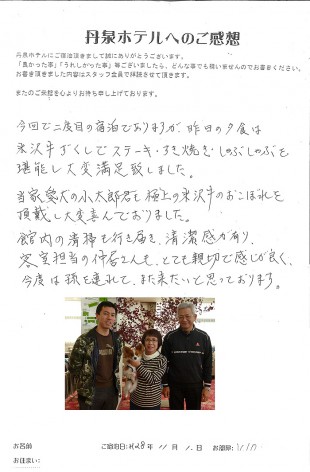 丹泉ホテルへのご感想
丹泉ホテルにご宿泊頂きまして誠にありがとうございます。
「良かった事」「うれしかった事」等ございましたら、どんな事でも構いませんのでお書きください。
お書き頂きました内容はスタッフ全員で拝読させて頂きます。
またのご来館を心よりお待ち申し上げております。
今回で二度目の宿泊でありますが、昨日の夕食は
米沢牛づくしでステーキ・すき焼き・しゃぶしゃぶを
堪能し大変満足致しました。
当家愛犬の小太郎君も極上の米沢牛のおこぼれを
頂戴し大変喜んでおりました。
館内の清掃も行き届き、清潔感が有り、
客室担当の仲居さんも、とても親切で感じが良く、
今度は孫を連れて、また来たいと思っております。
お名前
ご宿泊日:H28年 11月 1日
お部屋:
お住まい: